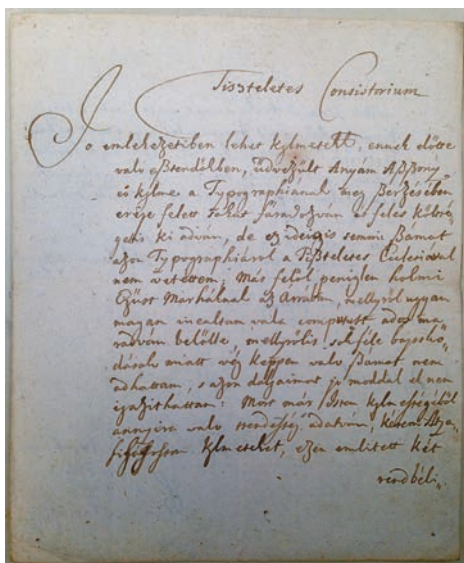 Tiszteletes Consistorium
Jo emlekezetiben lehet kglmetek, ennek előtte
való esztendőkben, üdvezült Anyám Aszszony
eö kglme a Typographianak meg Bérzésében
ereje felett sokat fáradozván és feles költsé,
get is ki adván, de ez ideigis semmi számot
azon Typographiáról a Tiszteletes Ecclesiával
nem vetettem; Más felől peniglen holmi
Ezüst Marháknak az Arrában, mellyről ugyan
magam is valék
radván belölle, mellyrölis sok féle bajosko,
dások miatt vég képpen való számot nem
adhattam, s azon dolgaimot jó moddal el nem
igazithattam: Most már Isten kglmességéből
annyira való rendesség adatván, kérem
kglmeteket, ezen emlitett két
rendbéli